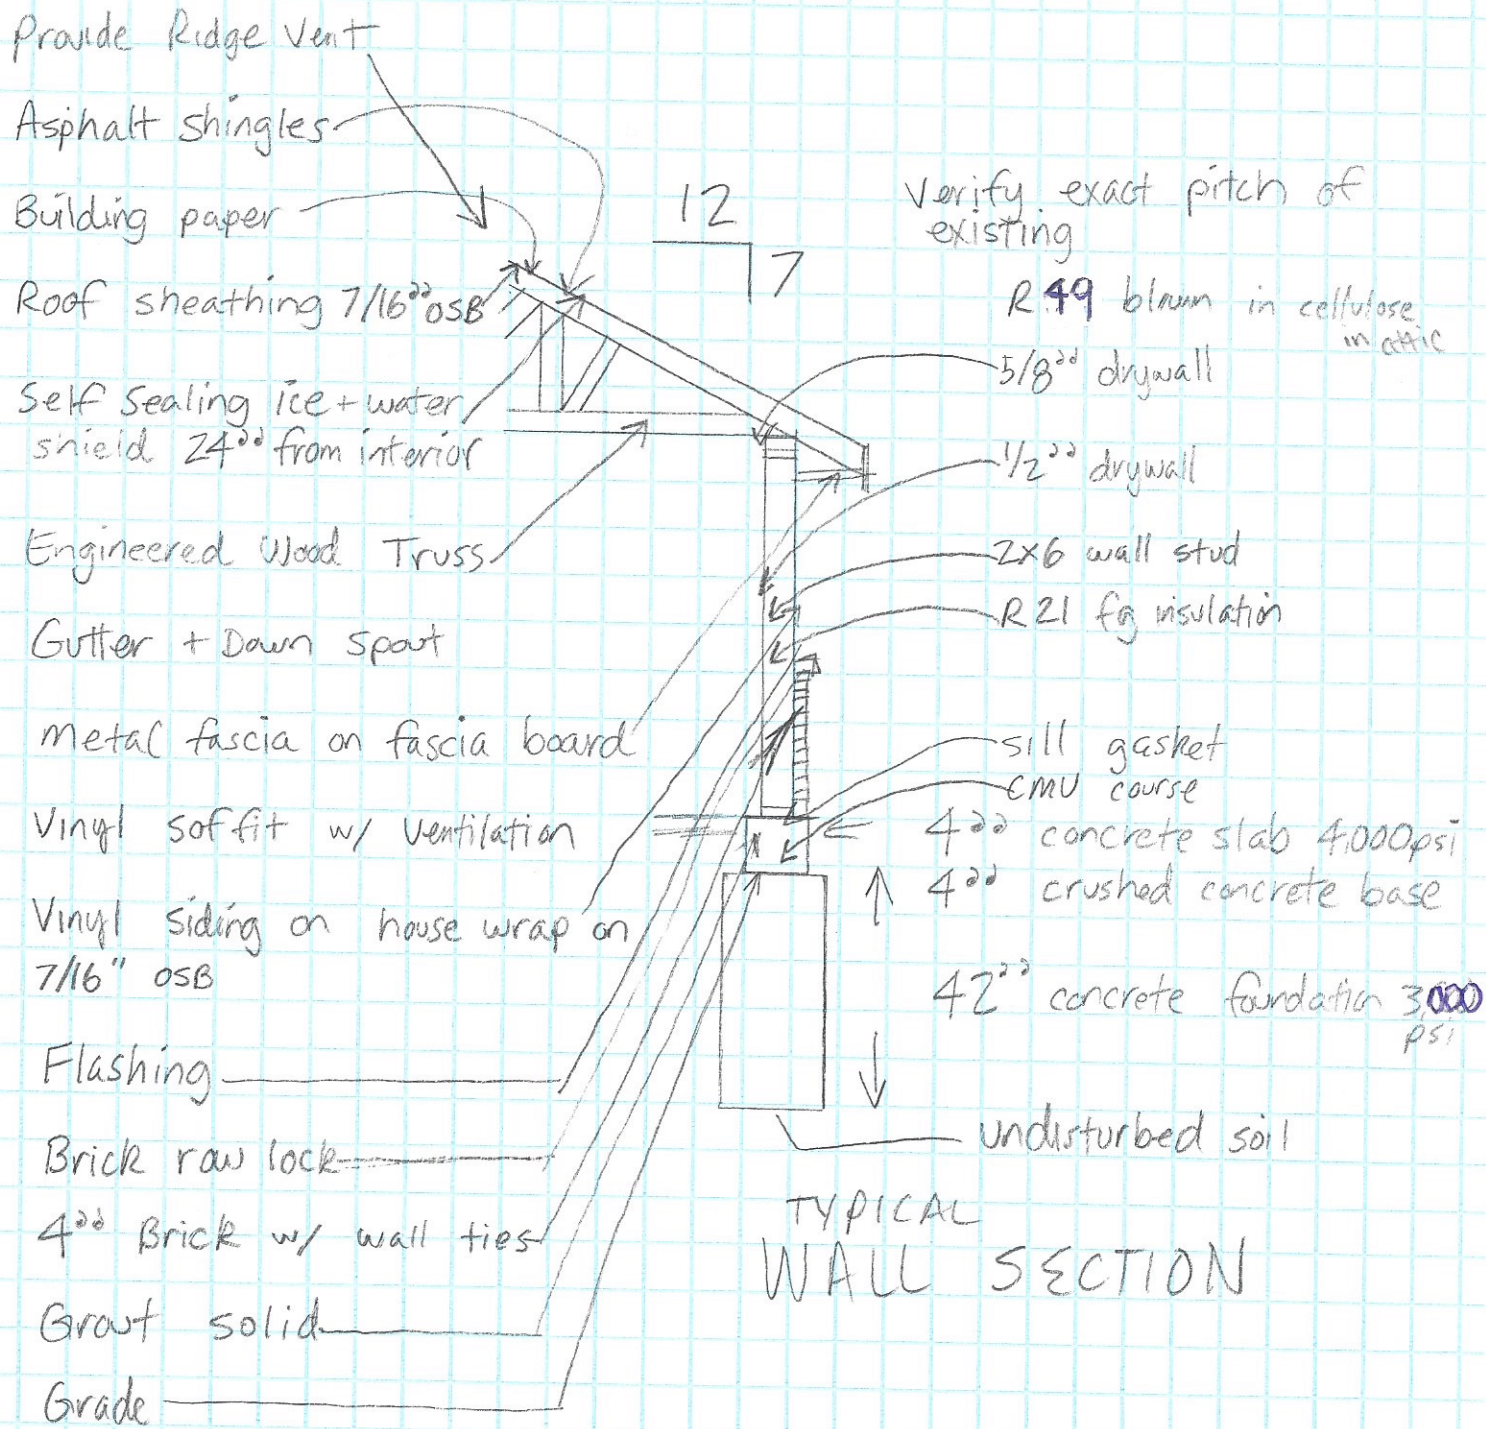 Provide Ridge Vent
Asphalt shingles
Building paper
Roof sheathing 7/16" OSB
Self Sealing ice + water
shield 24" from interior
Engineered Wood Truss
Gutter + Down spout
Metal fascia on fascia board
Vinyl soffit w/ ventilation
Vinyl siding on house wrap on
7/16" OSB
Flashing
Brick row lock
4" Brick w/ wall ties
Grout solid
Grade
12
7
Verify exact pitch of
existing
R 49 blown in cellulose
in attic
5/8" drywall
1/2" drywall
2x6 wall stud
R 21 fg insulation
sill gasket
CMU course
4" concrete slab 4,000psi
4" crushed concrete base
42" concrete foundation 3,000
psi
undisturbed soil
TYPICAL
WALL SECTION